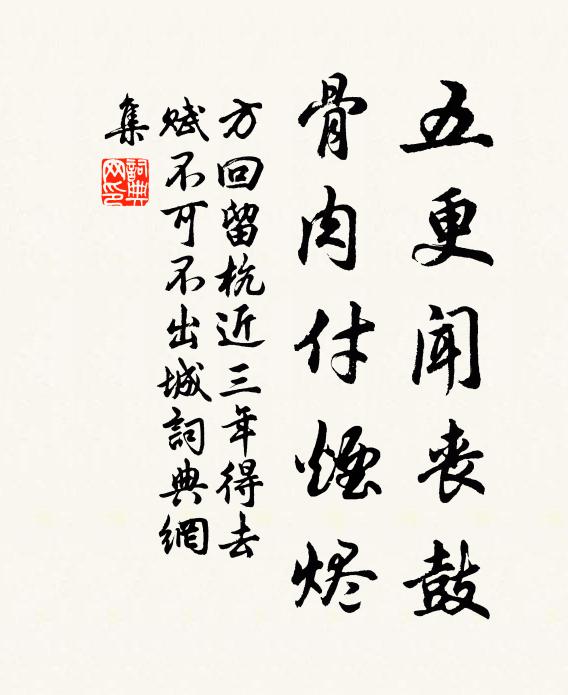 五更闻丧鼓
骨肉付煙烬
方回留杭近三年得去
赋不可不出城詞典網
集
詞典
网印